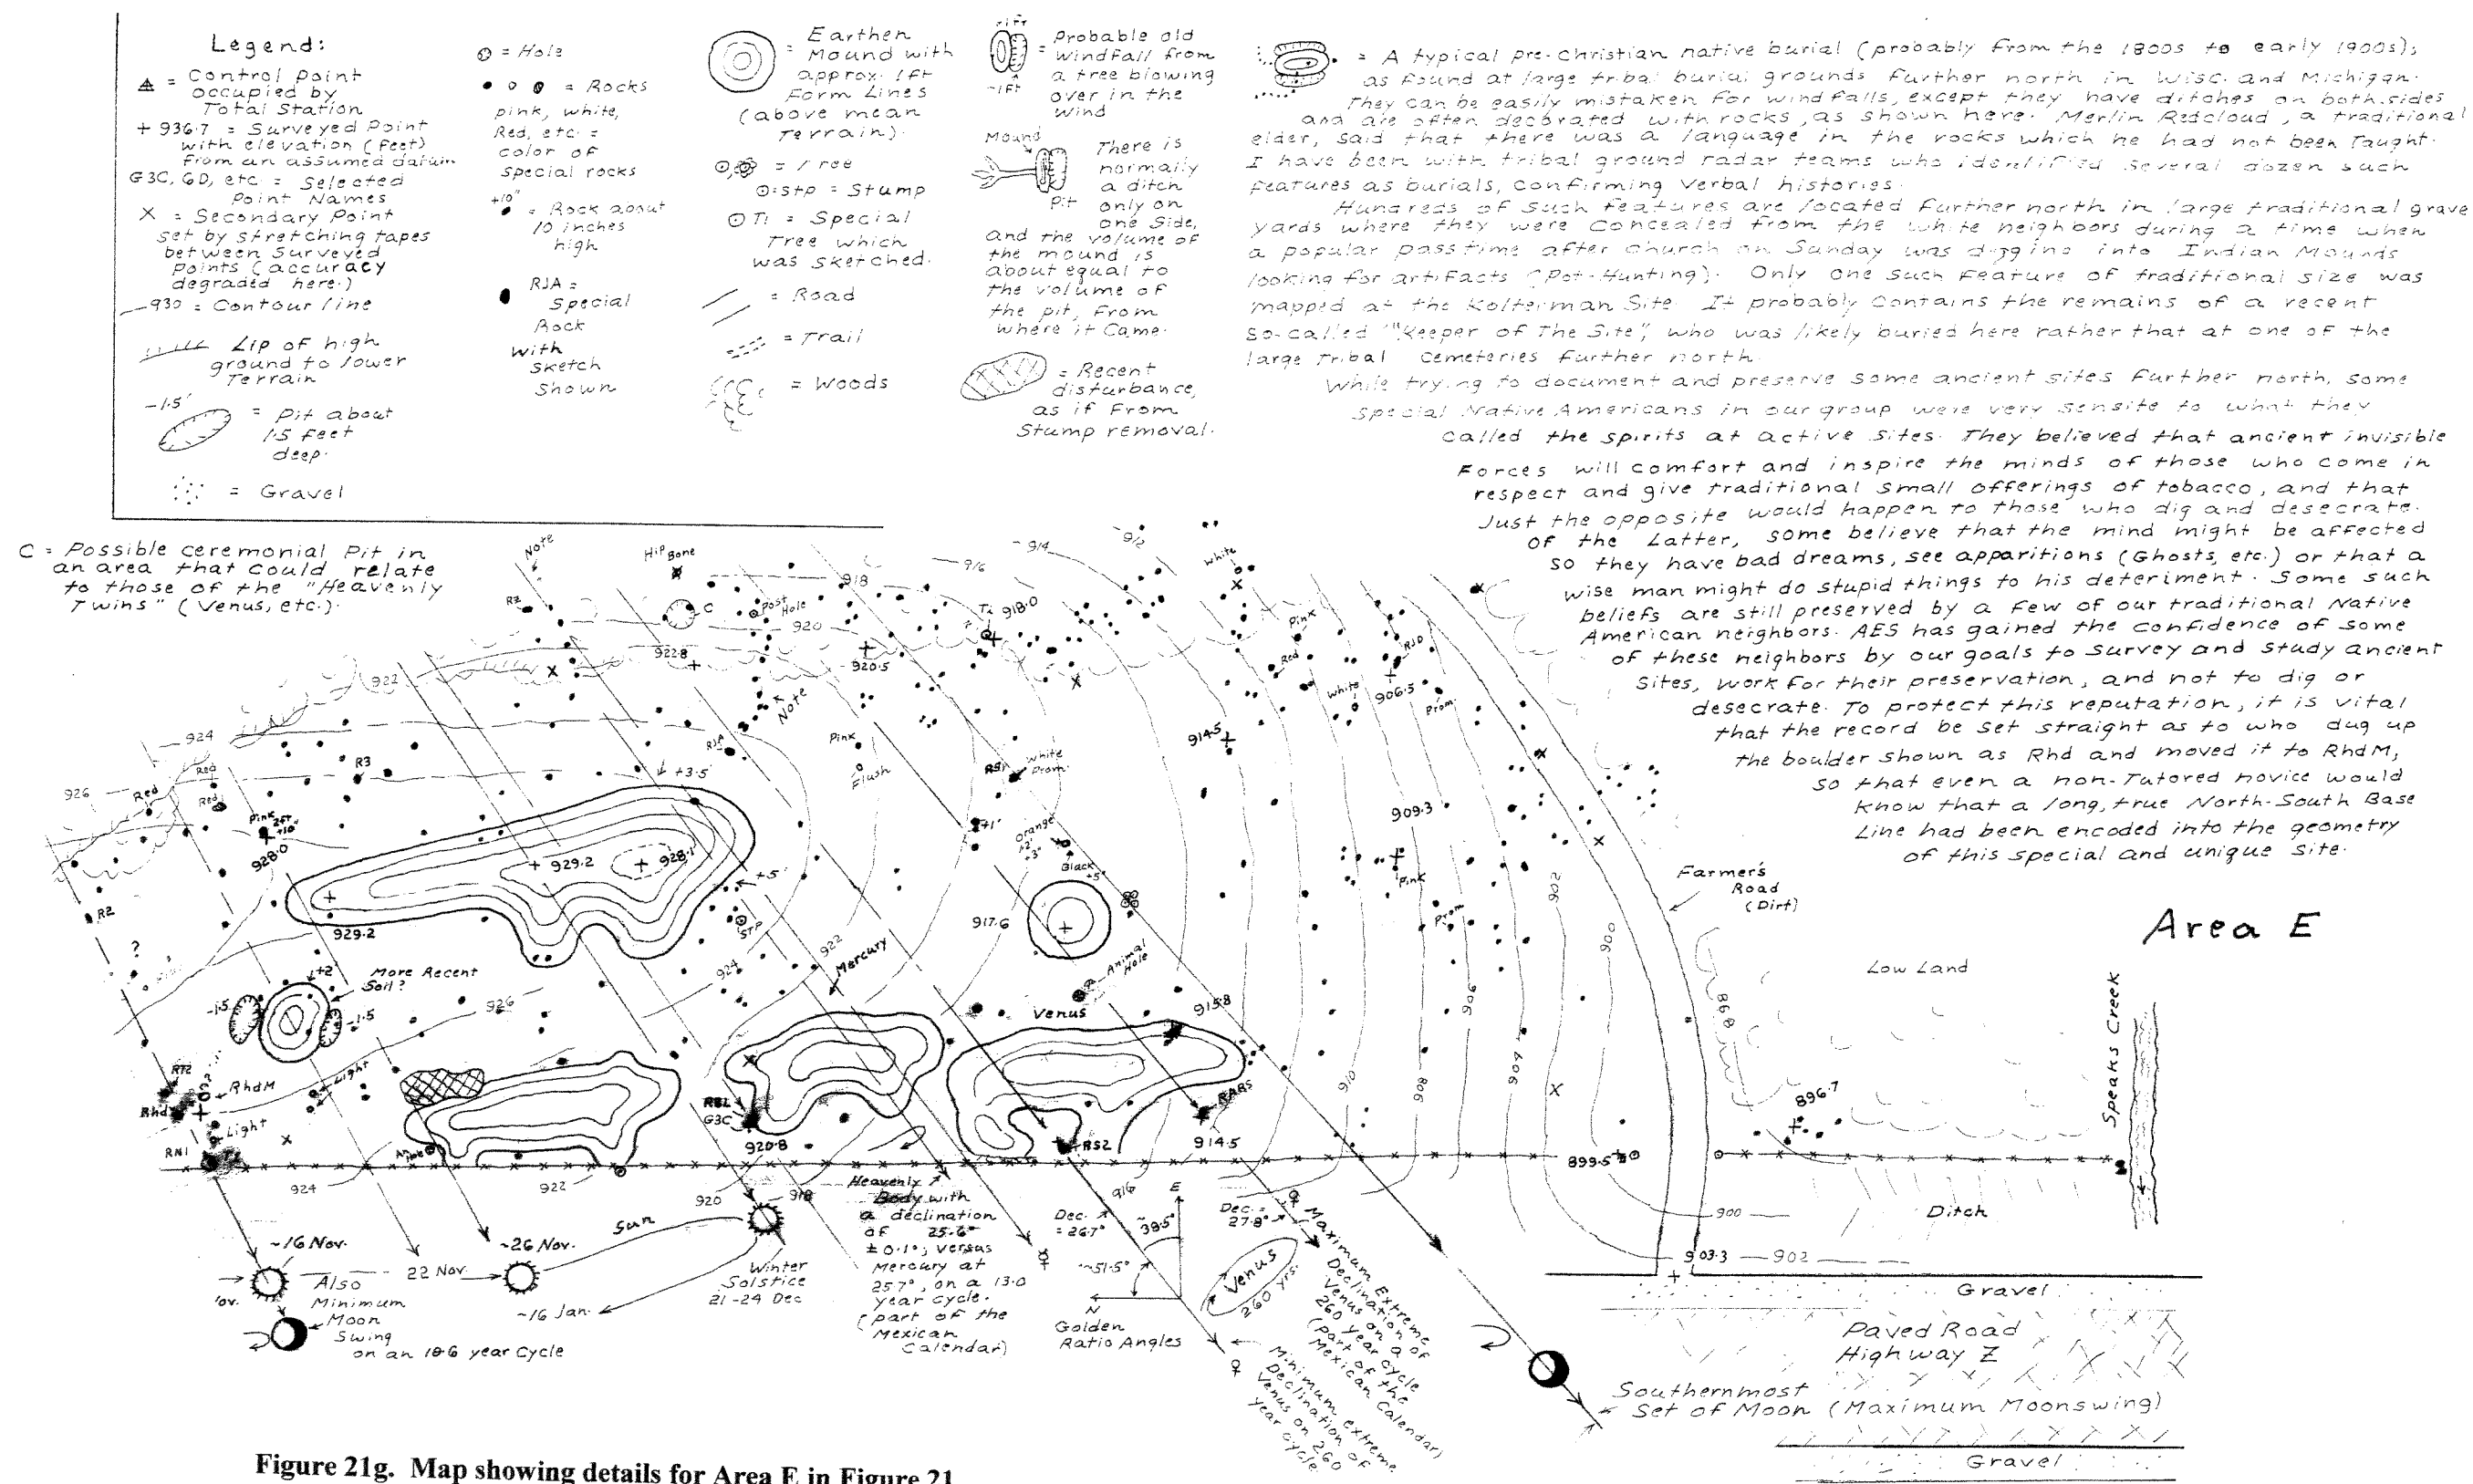 Legend:
= Control point
occupied by
Total Station
+ 936.7 = Surveyed Point
with elevation (feet)
from an assumed datum
G3C, GD, etc. = Selected
Point Names
X = Secondary Point
set by stretching tapes
between Surveyed
points (accuracy
degraded here.)
930 = Contour line
Lip of high
ground to lower
Terrain
-1.5'
= Pit about
1.5 feet
deep.
= Gravel
= Hole
= Rocks
pink, white,
Red, etc. =
color of
special rocks
+10"
= Rock about
10 inches
high
RJA =
Special
Rock
with
sketch
Shown
= Earthen
Mound with
approx. 1ft
Form Lines
(above mean
Terrain).
= Tree
stp = Stump
T1 = Special
Tree which
was sketched.
= Road
= Trail
= Woods
+1ft
-1ft
= Probable old
windfall from
a tree blowing
over in the
wind
Mound
Pit
There is
normally
a ditch
only on
one Side,
and the volume of
the mound is
about equal to
the volume of
the pit, from
where it Came.
= Recent
disturbance,
as if From
Stump removal.
= A typical pre-Christian native burial (probably from the 1800s to early 1900s);
as found at large tribal burial grounds further north in Wisc. and Michigan.
They can be easily mistaken for windfalls, except they have ditches on both sides
and are often decorated with rocks, as shown here. Merlin Redcloud, a traditional
elder, said that there was a language in the rocks which he had not been Taught.
I have been with tribal ground radar teams who identified several dozen such
features as burials, confirming verbal histories.
Hundreds of such features are located further north in large traditional grave
yards where they were concealed from the white neighbors during a time when
a popular passtime after church on Sunday was digging into Indian Mounds
looking for artifacts (Pot-Hunting). Only one such Feature of traditional size was
mapped at the Kolterman Site. It probably contains the remains of a recent
so-called "Keeper of The Site", who was likely buried here rather that at one of the
large Tribal Cemeteries further north.
While trying to document and preserve some ancient sites further north, some
special Native Americans in our group were very sensite to what they
called the spirits at active sites. They believed that ancient invisible
Forces will comfort and inspire the minds of those who come in
respect and give traditional small offerings of tobacco, and that
Just the opposite would happen to those who dig and desecrate.
of the Latter, some believe that the mind might be affected
so they have bad dreams, see apparitions (Ghosts, etc.) or that a
wise man might do stupid things to his deteriment. Some such
beliefs are still preserved by a few of our traditional Native
American neighbors. AES has gained the confidence of some
of these neighbors by our goals to survey and study ancient
Sites, work for their preservation, and not to dig or
desecrate. To protect this reputation, it is vital
that the record be set straight as to who dug up
the boulder shown as Rhd and moved it to RhdM,
so that even a non-Tutored novice would
know that a long, true North-South Base
Line had been encoded into the geometry
of this special and unique site.
C = Possible ceremonial Pit in
an area that could relate
to those of the "Heavenly
Twins" (Venus, etc.).
Note
Hip Bone
C
Post Hole
918
916
914
912
White
R2
920
T1
918.0
Pink
922.8
920.5
Red
RJD
922
White
906.5
Prom
Note
924
RJA
Pink
Flush
914.5
Red
Red
R3
+3.5'
White
Prom.
926
Red
Pink
2ft
+10"
928.0
+1'
Orange
Black
+5"
909.3
929.2
928.1
+5'
Pink
Farmer's
Road
(Dirt)
R2
929.2
STP
917.6
Prom
902
900
Area E
?
More Recent
Soil?
+2'
-1.5
-1.5
926
924
922
Mercury
Animal
Hole
Low Land
898
Speaks Creek
Venus
915.8
906
RT2
RhdM
Rhd
Light
Light
RN1
G3C
920.8
RS2
914.5
910
908
904
896.7
899.5
924
922
920
918
916
900
Ditch
903.3
902
~16 Nov.
22 Nov.
~26 Nov.
Sun
Also
Minimum
Moon
Swing
on an 18.6 year Cycle
~16 Jan.
Winter
Solstice
21-24 Dec
Heavenly
Body with
a declination
of 25.6°
±0.1°; versus
Mercury at
25.7°, on a 13.0
year cycle.
(part of the
Mexican
Calendar)
Dec.
= 26.7°
E
~38.5°
~51.5°
N
Golden
Ratio Angles
Dec. =
27.8°
Venus
260 yrs.
Maximum Extreme
Declination of
Venus on a
260 year cycle
(part of the
Mexican Calendar)
Minimum extreme
Declination of
Venus on 260
year cycle.
Gravel
Paved Road
Highway Z
Southernmost
Set of Moon (Maximum Moonswing)
Gravel
Figure 21g. Map showing details for Area E in Figure 21